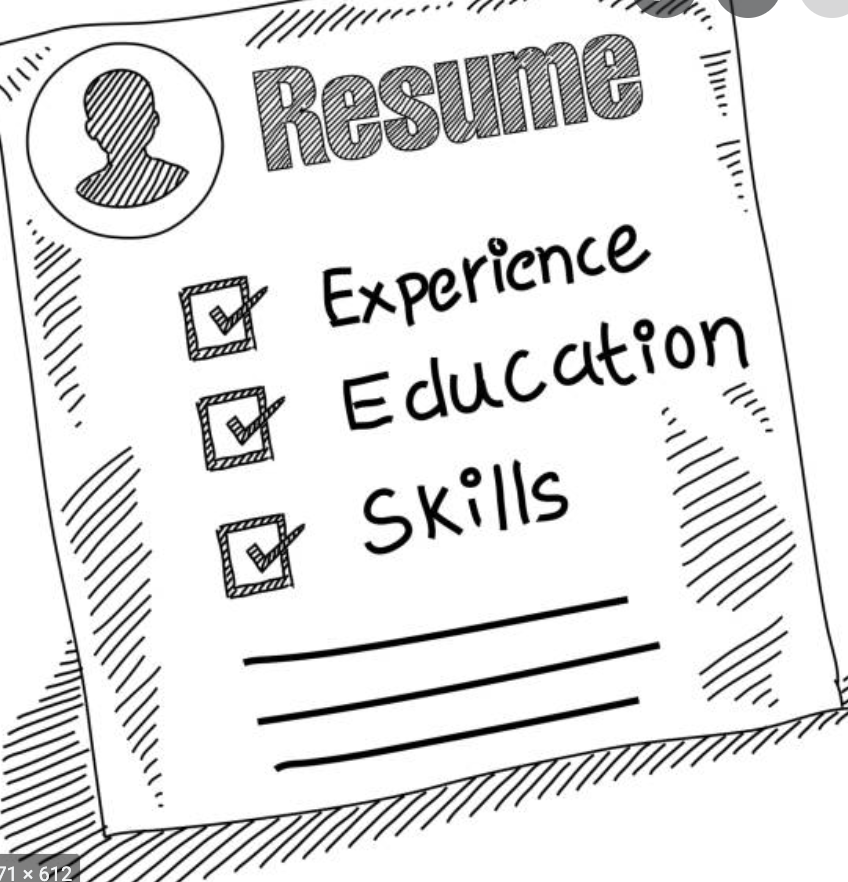 Resume
Experience
Education
Skills
71 × 612